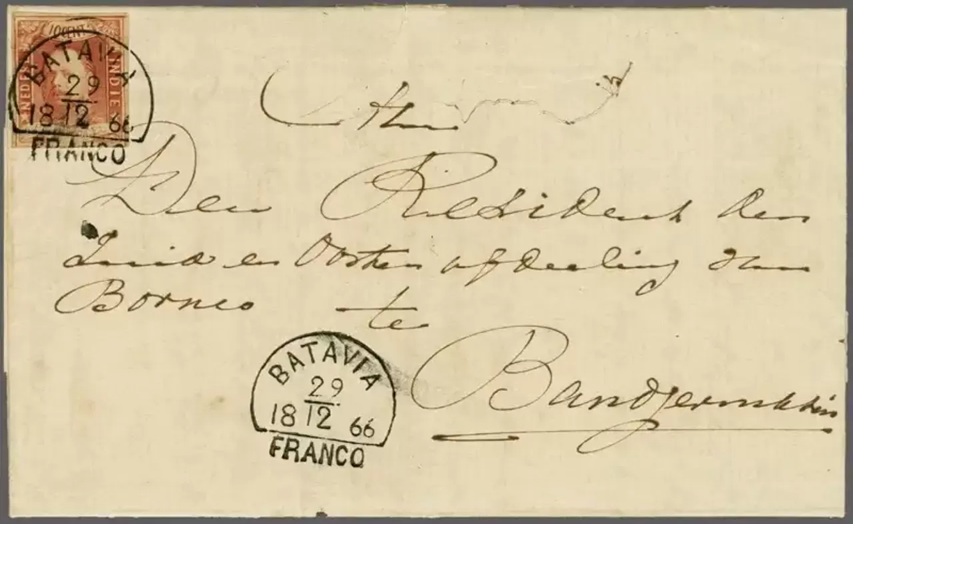 10 CENT
NEDERL INDIE
BATAVIA
29
18 12 66
FRANCO
Den Resident der
Zuid en Ooster afdeeling van
Borneo te
Bandjermasin
BATAVIA
29
18 12 66
FRANCO